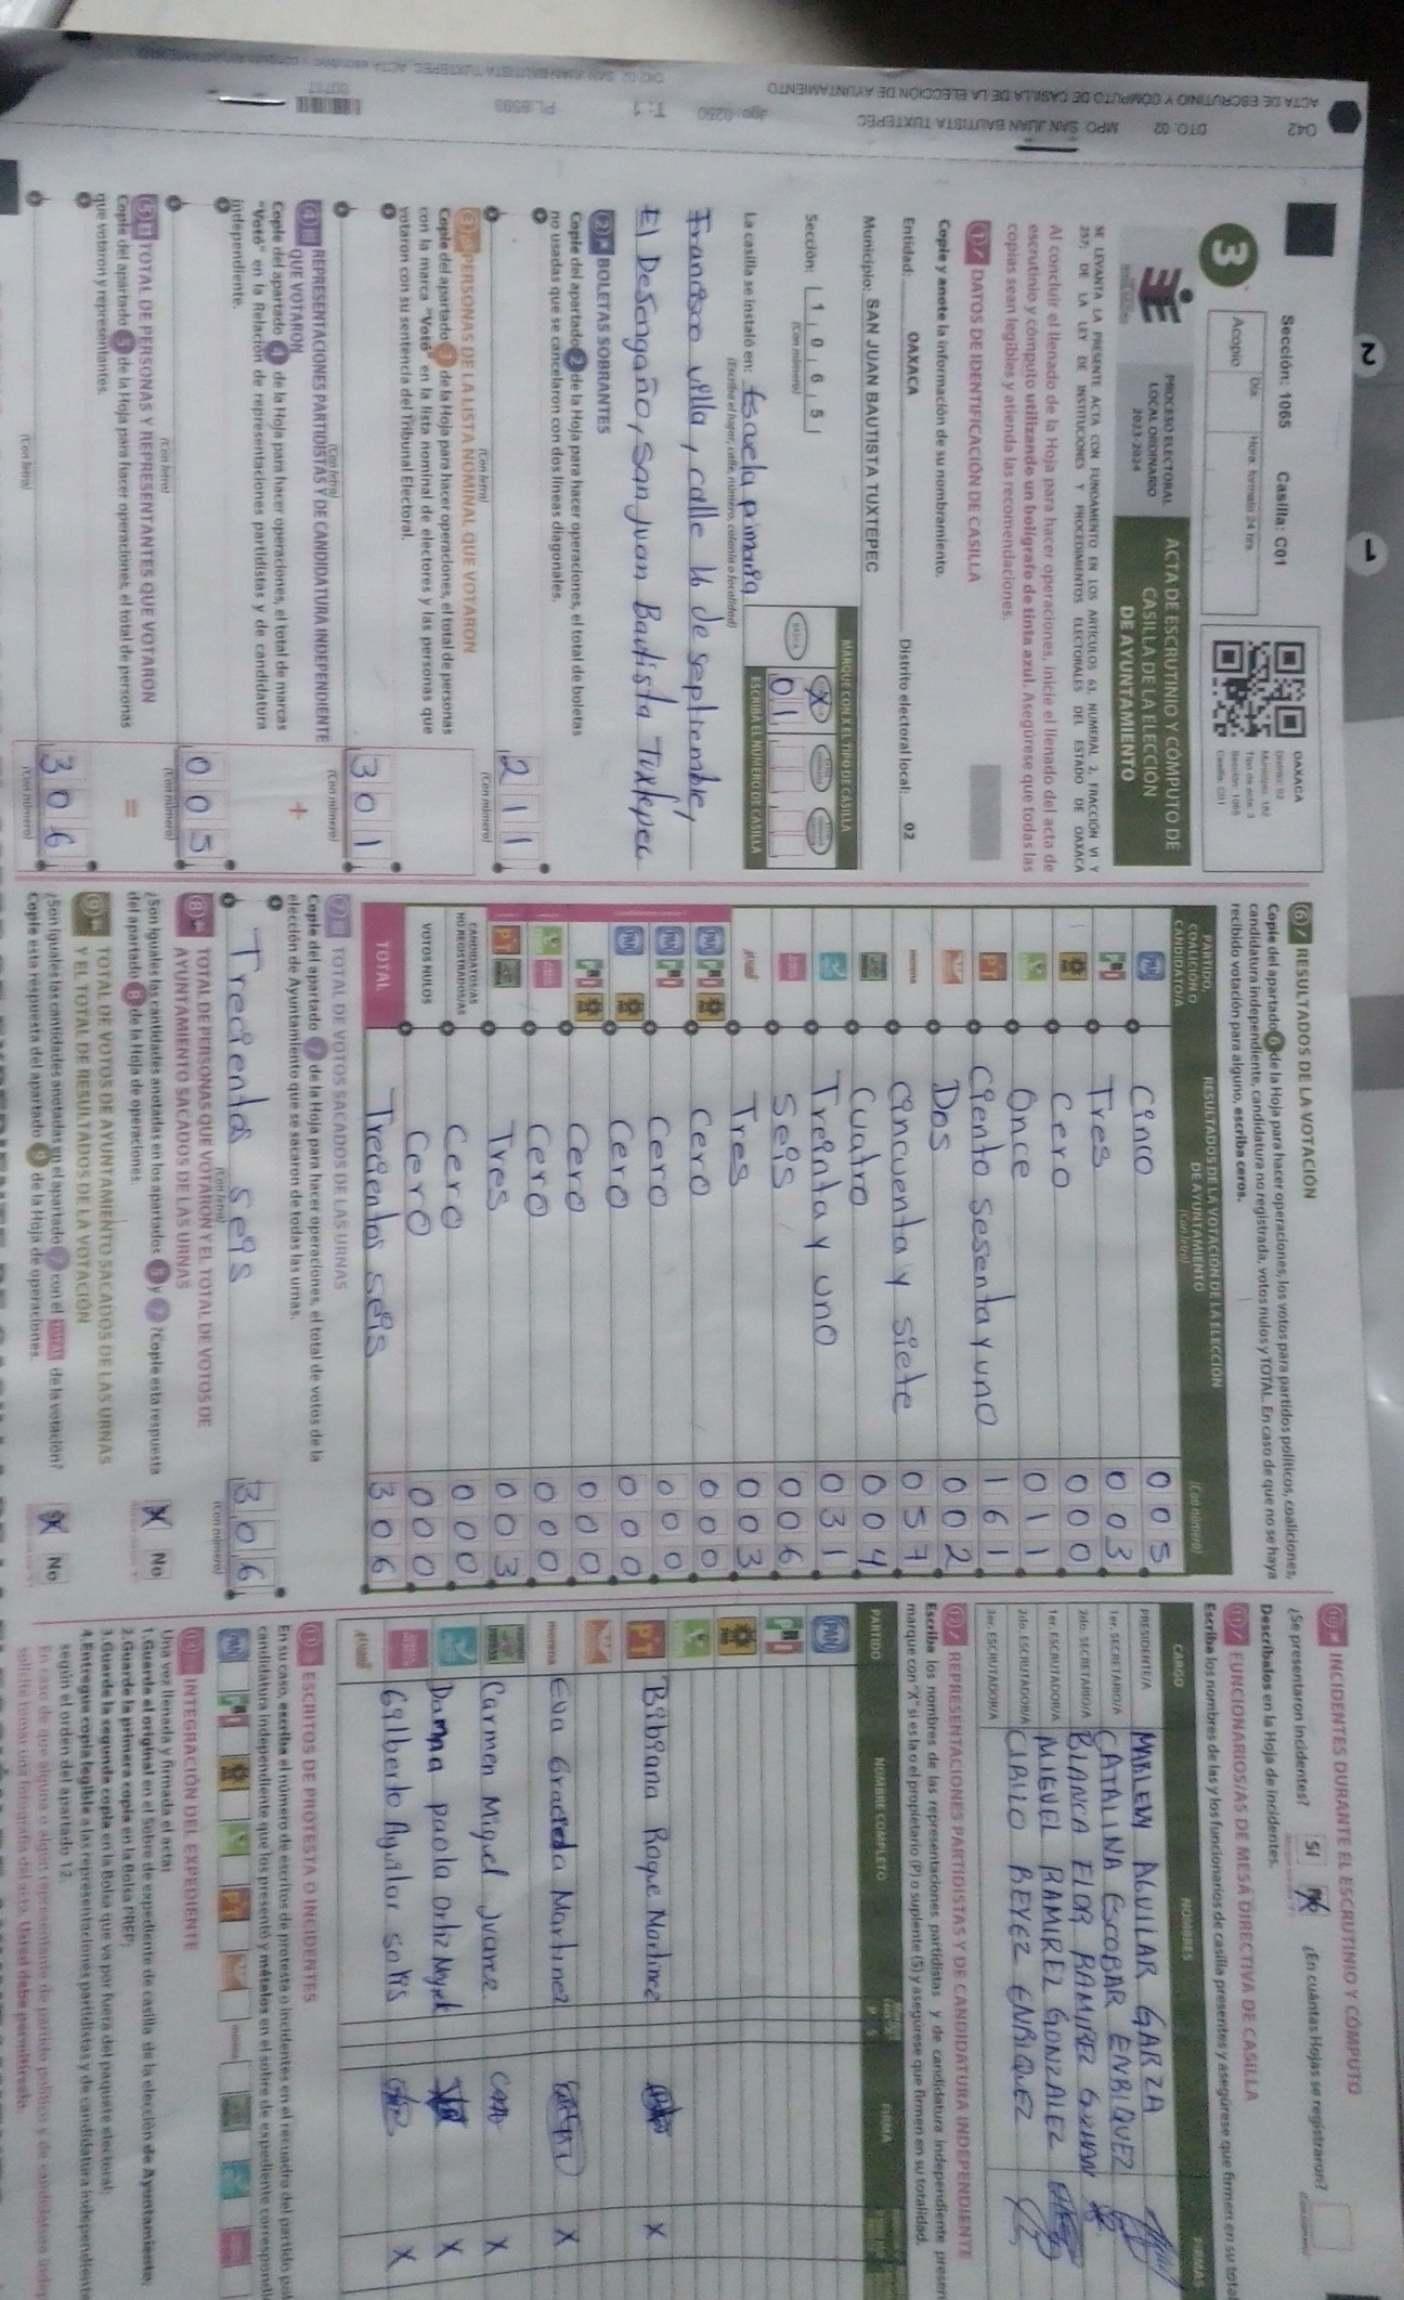 2
1
Sección: 1065 Casilla: C01
Día: Hora: formato 24 hrs.
Acopio
3
OAXACA
Distrito: 02
Tipo de acta: 3
Sección: 1065
Casilla: C01
PROCESO ELECTORAL
LOCAL ORDINARIO
2023-2024
ACTA DE ESCRUTINIO Y CÓMPUTO DE
CASILLA DE LA ELECCIÓN
DE AYUNTAMIENTO
SE LEVANTA LA PRESENTE ACTA CON FUNDAMENTO EN LOS ARTÍCULOS 63, NUMERAL 2, FRACCIÓN VI Y
257; DE LA LEY DE INSTITUCIONES Y PROCEDIMIENTOS ELECTORALES DEL ESTADO DE OAXACA
Al concluir el llenado de la Hoja para hacer operaciones, inicie el llenado del acta de
escrutinio y cómputo utilizando un bolígrafo de tinta azul. Asegúrese que todas las
copias sean legibles y atienda las recomendaciones.
1 DATOS DE IDENTIFICACIÓN DE CASILLA
Copie y anote la información de su nombramiento.
Entidad: OAXACA Distrito electoral local: 02
Municipio: SAN JUAN BAUTISTA TUXTEPEC
MARQUE CON X EL TIPO DE CASILLA
Sección: 1 0 6 5
(Con número)
BÁSICA X
ESCRIBA EL NÚMERO DE CASILLA
01
La casilla se instaló en: Escuela primaria
(Escriba el lugar, calle, número, colonia o localidad)
Francisco villa, calle 16 de septiembre,
El Desengaño, San Juan Bautista Tuxtepec
2 BOLETAS SOBRANTES
Copie del apartado 2 de la Hoja para hacer operaciones, el total de boletas
no usadas que se cancelaron con dos líneas diagonales.
211
(Con letra) (Con número)
3 PERSONAS DE LA LISTA NOMINAL QUE VOTARON
Copie del apartado 3 de la Hoja para hacer operaciones, el total de personas
con la marca "Votó" en la lista nominal de electores y las personas que
votaron con su sentencia del Tribunal Electoral.
301
(Con letra) (Con número)
4 REPRESENTACIONES PARTIDISTAS Y DE CANDIDATURA INDEPENDIENTE
QUE VOTARON
+
Copie del apartado 4 de la Hoja para hacer operaciones, el total de marcas
"Votó" en la Relación de representaciones partidistas y de candidatura
independiente.
005
(Con letra) (Con número)
5 TOTAL DE PERSONAS Y REPRESENTANTES QUE VOTARON
=
Copie del apartado 5 de la Hoja para hacer operaciones, el total de personas
que votaron y representantes.
306
(Con letra) (Con número)
6 RESULTADOS DE LA VOTACIÓN
Copie del apartado 6 de la Hoja para hacer operaciones, los votos para partidos políticos, coaliciones,
candidatura independiente, candidatura no registrada, votos nulos y TOTAL. En caso de que no se haya
recibido votación para alguno, escriba ceros.
PARTIDO,
COALICIÓN O
CANDIDATO/A
RESULTADOS DE LA VOTACIÓN DE LA ELECCIÓN
DE AYUNTAMIENTO
(Con letra) (Con número)
PAN Cinco 005
PRI Tres 003
Cero 000
Once 011
PT Ciento sesenta y uno 161
Dos 002
morena Cincuenta y siete 057
Cuatro 004
Treinta y uno 031
Seis 006
Tres 003
PAN PRI Cero 000
PAN PRI Cero 000
PAN Cero 000
PRI Cero 000
Cero 000
PT Tres 003
CANDIDATOS/AS
NO REGISTRADOS/AS
Cero 000
VOTOS NULOS Cero 000
TOTAL Trecientos seis 306
7 TOTAL DE VOTOS SACADOS DE LAS URNAS
Copie del apartado 7 de la Hoja para hacer operaciones, el total de votos de la
elección de Ayuntamiento que se sacaron de todas las urnas.
Trecientos seis 306
(Con letra) (Con número)
8 TOTAL DE PERSONAS QUE VOTARON Y EL TOTAL DE VOTOS DE
AYUNTAMIENTO SACADOS DE LAS URNAS
¿Son iguales las cantidades anotadas en los apartados 5 y 7? Copie esta respuesta
del apartado 8 de la Hoja de operaciones.
X No
9 TOTAL DE VOTOS DE AYUNTAMIENTO SACADOS DE LAS URNAS
Y EL TOTAL DE RESULTADOS DE LA VOTACIÓN
¿Son iguales las cantidades anotadas en el apartado 7 con el TOTAL de la votación?
Copie esta respuesta del apartado 9 de la Hoja de operaciones.
X No
10 INCIDENTES DURANTE EL ESCRUTINIO Y CÓMPUTO
¿Se presentaron incidentes? Sí X ¿En cuántas Hojas se registraron?
Descríbalos en la Hoja de Incidentes.
11 FUNCIONARIOS/AS DE MESA DIRECTIVA DE CASILLA
Escriba los nombres de las y los funcionarios de casilla presentes y asegúrese que firmen en su tota
CARGO NOMBRES FIRMAS
PRESIDENTE/A MARLEN AGUILAR GARZA
1er. SECRETARIO/A CATALINA ESCOBAR ENRIQUEZ
2do. SECRETARIO/A BLANCA FLOR RAMIREZ
1er. ESCRUTADOR/A MIGUEL RAMIREZ GONZALEZ
2do. ESCRUTADOR/A CIRILO REYEZ ENRIQUEZ
3er. ESCRUTADOR/A
12 REPRESENTACIONES PARTIDISTAS Y DE CANDIDATURA INDEPENDIENTE
Escriba los nombres de las representaciones partidistas y de candidatura independiente presen
marque con "X" si es la o el propietario (P) o suplente (S) y asegúrese que firmen en su totalidad.
PARTIDO NOMBRE COMPLETO P S FIRMA
PAN
PRI
PT Bibiana Roque Martinez X
morena Eva Graciela Martinez X
Carmen Miguel Juarez X
Danna paola ortiz X
Gilberto Aguilar solis X
13 ESCRITOS DE PROTESTA O INCIDENTES
En su caso, escriba el número de escritos de protesta o incidentes en el recuadro del partido pol
candidatura independiente que los presentó y métalos en el sobre de expediente correspondi
PAN PRI PT
14 INTEGRACIÓN DEL EXPEDIENTE
Una vez llenada y firmada el acta:
1. Guarde el original en el Sobre de expediente de casilla de la elección de Ayuntamiento;
2. Guarde la primera copia en la Bolsa PREP;
3. Guarde la segunda copia en la Bolsa que va por fuera del paquete electoral;
4. Entregue copia legible a las representaciones partidistas y de candidatura independiente
según el orden del apartado 12.
En caso de que alguna o algún representante de partido político o de candidatura indep
solicite tomar una fotografía del acta, usted debe permitírselo.
ACTA DE ESCRUTINIO Y CÓMPUTO DE CASILLA DE LA ELECCIÓN DE AYUNTAMIENTO
042 DTO. 02 MPO. SAN JUAN BAUTISTA TUXTEPEC
T: 1